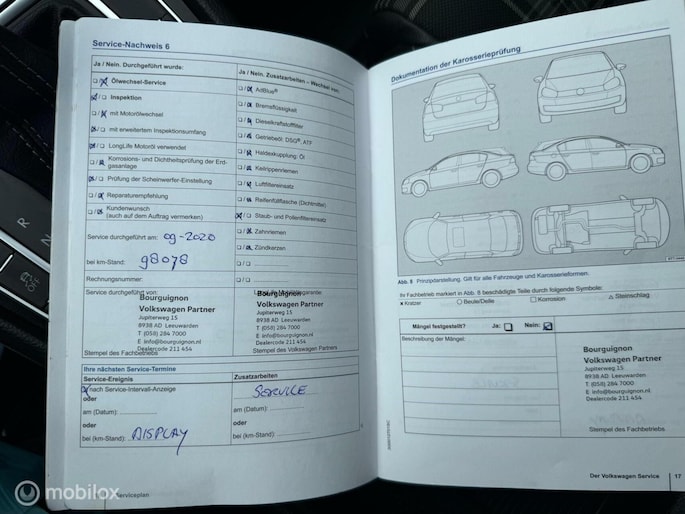 Service-Nachweis 6
Ja / Nein. Durchgeführt wurde:
Ölwechsel-Service
Inspektion
mit Motorölwechsel
mit erweitertem Inspektionsumfang
LongLife Motoröl verwendet
Korrosions- und Dichtheitsprüfung der Erd-
gasanlage
Prüfung der Scheinwerfer-Einstellung
Reparaturempfehlung
Kundenwunsch
(auch auf dem Auftrag vermerken)
Service durchgeführt am: 09-2020
bei km-Stand: 98078
Rechnungsnummer:
Service durchgeführt von:
Bourguignon
Volkswagen Partner
Jupiterweg 15
8938 AD Leeuwarden
T (058) 284 7000
E info@bourguignon.nl
Dealercode 211 454
Stempel des Fachbetriebs
Ja / Nein. Zusatzarbeiten – Wechsel von:
AdBlue®
Bremsflüssigkeit
Dieselkraftstofffilter
Getriebeöl: DSG®, ATF
Haldexkupplung: Öl
Keilrippenriemen
Luftfiltereinsatz
Reifenfüllflasche (Dichtmittel)
Staub- und Pollenfiltereinsatz
Zahnriemen
Zündkerzen
Bourguignon
Volkswagen Partner
Jupiterweg 15
8938 AD Leeuwarden
T (058) 284 7000
E info@bourguignon.nl
Dealercode 211 454
Stempel des Fachbetriebs
Ihre nächsten Service-Termine
Service-Ereignis
nach Service-Intervall-Anzeige
oder
am (Datum):
oder
bei (km-Stand): DISPLAY
Zusatzarbeiten
SERVICE
am (Datum):
oder
bei (km-Stand):
Serviceplan
Dokumentation der Karosserieprüfung
Abb. 8 Prinzipdarstellung. Gilt für alle Fahrzeuge und Karosserieformen.
Ihr Fachbetrieb markiert in Abb. 8 beschädigte Teile durch folgende Symbole:
x Kratzer ○ Beule/Delle □ Korrosion △ Steinschlag
Mängel festgestellt? Ja: Nein:
Beschreibung der Mängel:
Bourguignon
Volkswagen Partner
Jupiterweg 15
8938 AD Leeuwarden
T (058) 284 7000
E info@bourguignon.nl
Dealercode 211 454
Stempel des Fachbetriebs
Der Volkswagen Service 17
R
N
OFF
mobilox